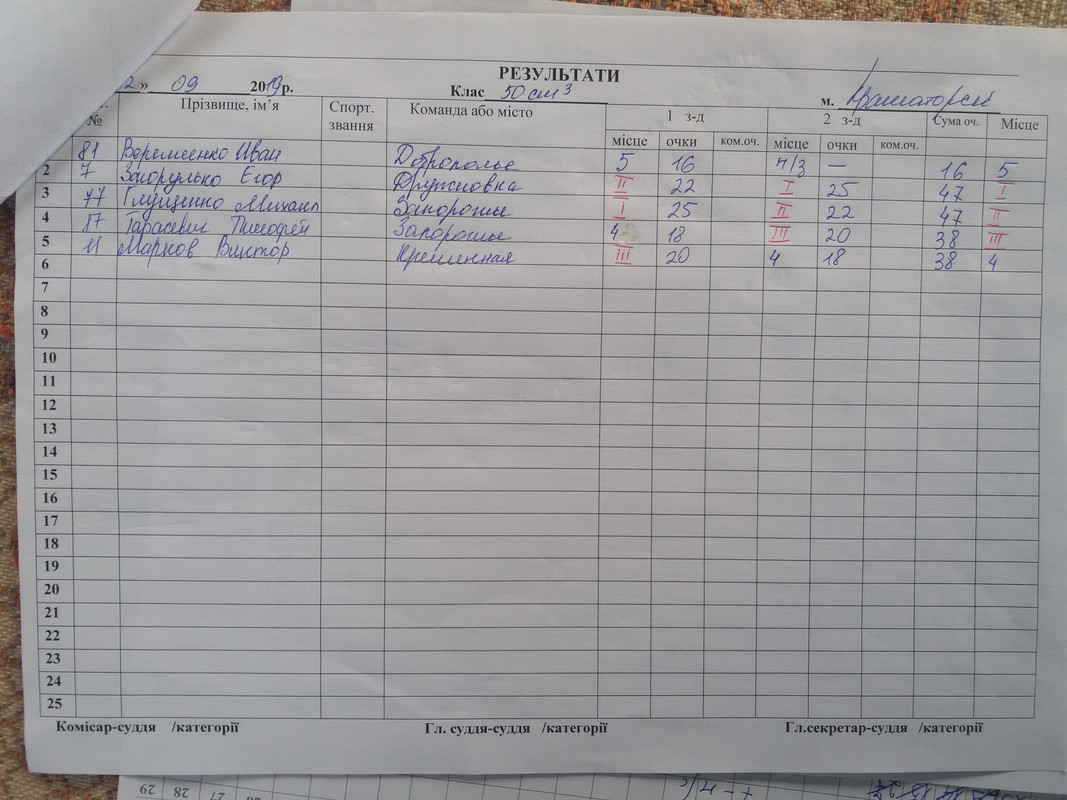 РЕЗУЛЬТАТИ
2 » 09 2019 р. Клас 50 см3 м. Краматорск
№ Прізвище, ім’я Спорт. звання Команда або місто 1 з-д 2 з-д Сума оч. Місце
місце очки ком.оч. місце очки ком.оч.
81 Веремеенко Иван Доброполье 5 16 н/з — 16 5
2 7 Загорулько Егор Дружковка II 22 I 25 47 I
3 77 Глущенко Михаил Запорожье I 25 II 22 47 II
4 17 Тарасевич Тимофей Запорожье 4 18 III 20 38 III
5 11 Марков Виктор Кременная III 20 4 18 38 4
6
7
8
9
10
11
12
13
14
15
16
17
18
19
20
21
22
23
24
25
Комісар-суддя /категорії Гл. суддя-суддя /категорії Гл.секретар-суддя /категорії
29 28 27